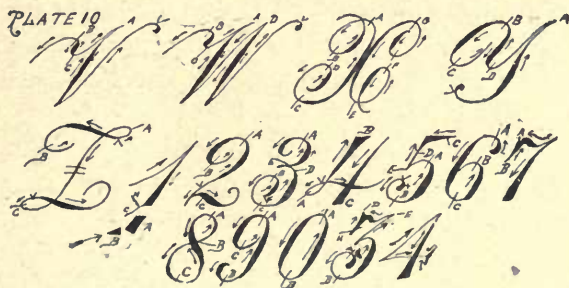 PLATE 10
V W X Y
Z 1 2 3 4 5 6 7
8 9 0 5 4